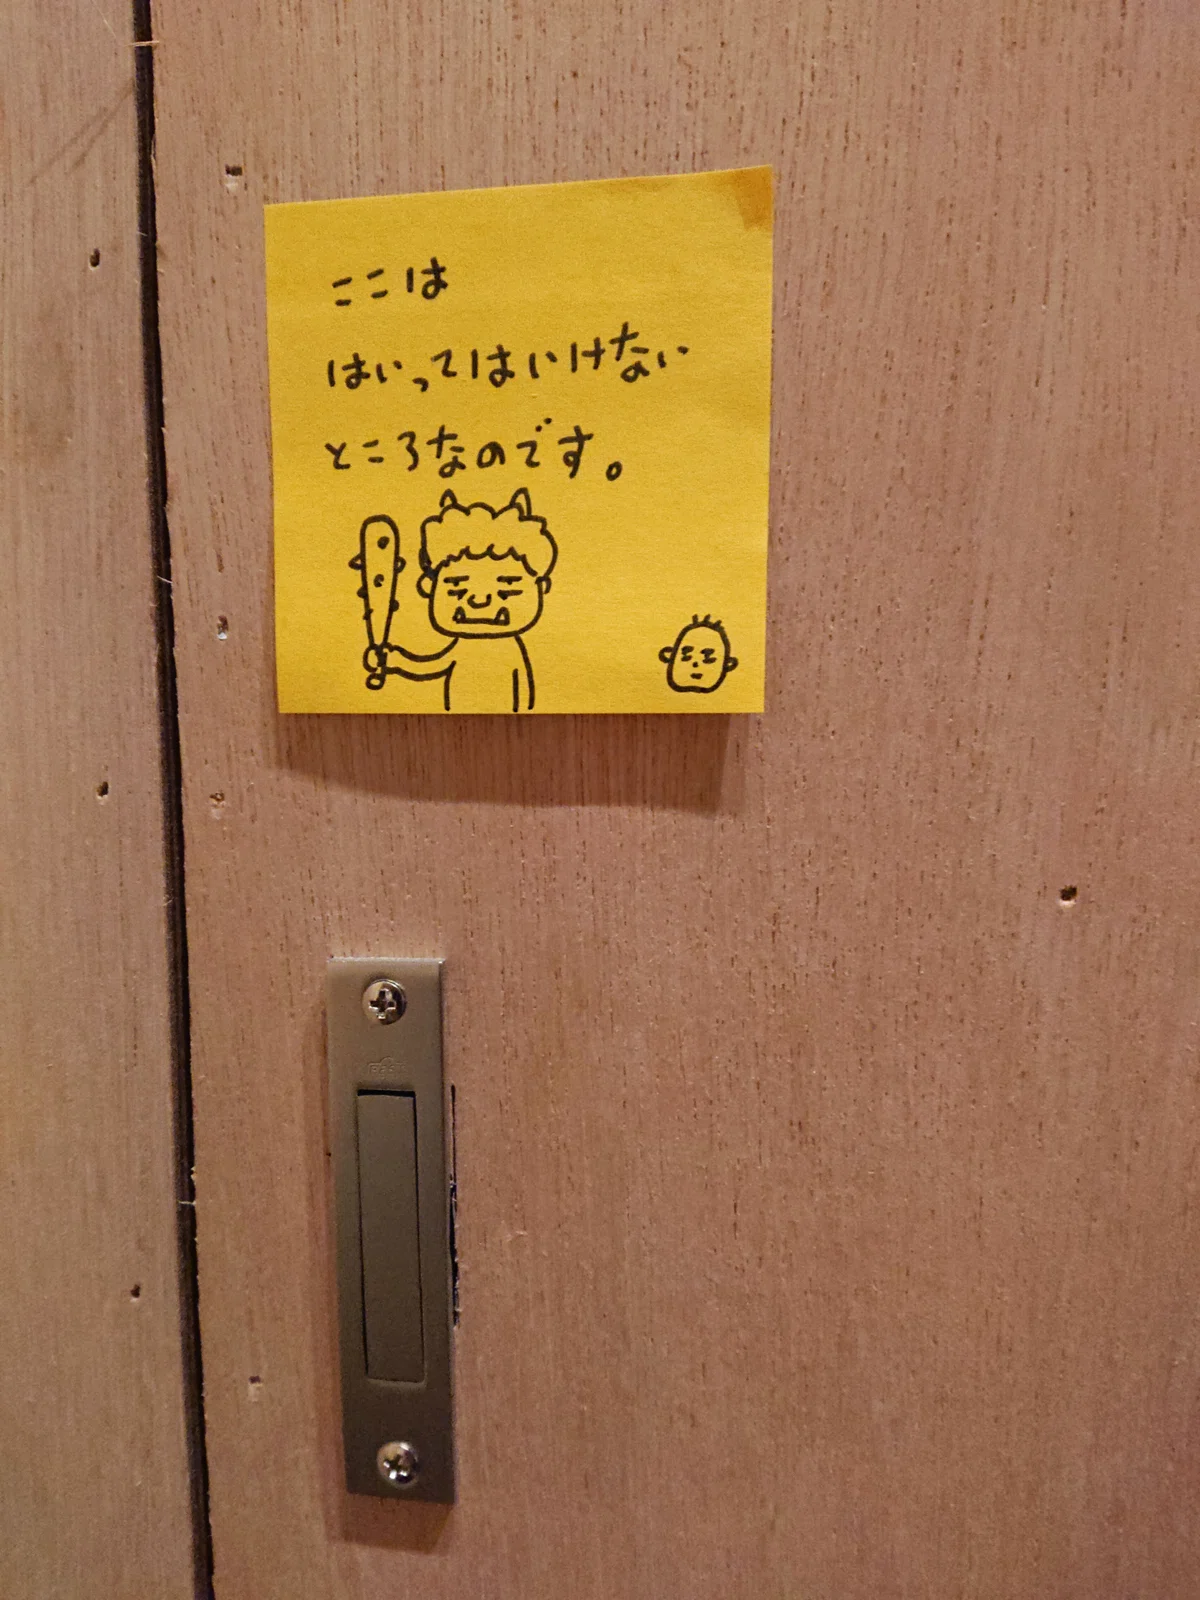 ここは
はいってはいけない
ところなのです。